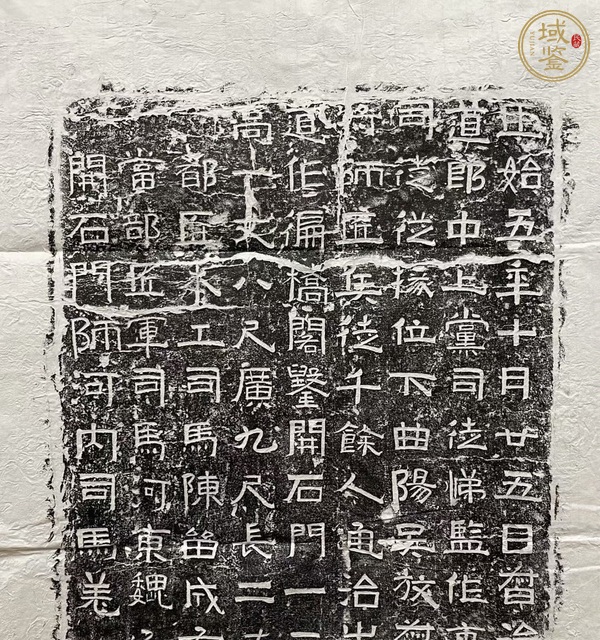 域鑒
正始五年十月廿五日督治
道郎中上黨司徒悌監作
司徒從掾位下曲陽吳放督
將師匠兵徒千餘人通治
道作徧橋閣鑿開石門一
高一丈八尺廣九尺長二
都匠木工司馬陳留成
當部匠軍司馬河東魏
開石門師河內司馬羌